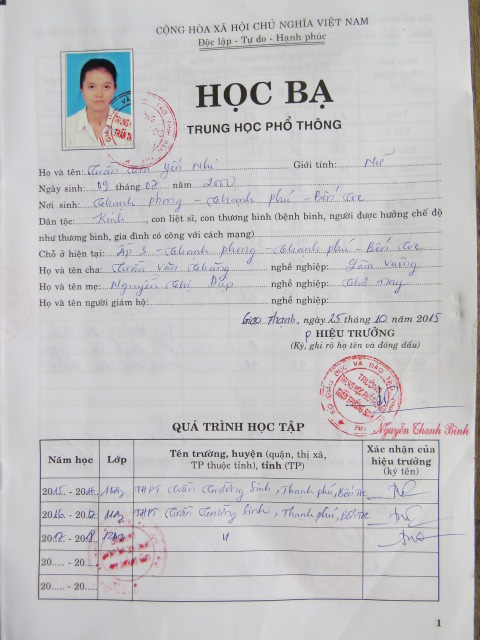 CỘNG HÒA XÃ HỘI CHỦ NGHĨA VIỆT NAM
Độc lập - Tự do - Hạnh phúc
HỌC BẠ
TRUNG HỌC PHỔ THÔNG
Họ và tên: Trần Thị Yến Nhi Giới tính: Nữ
Ngày sinh: 09 tháng 07 năm 2000
Nơi sinh: Thạnh Phong - Thạnh Phú - Bến Tre
Dân tộc: Kinh, con liệt sĩ, con thương binh (bệnh binh, người được hưởng chế độ
như thương binh, gia đình có công với cách mạng):
Chỗ ở hiện tại: Ấp 3 - Thạnh Phong - Thạnh Phú - Bến Tre
Họ và tên cha: Trần Văn nghề nghiệp: Làm
Họ và tên mẹ: Nguyễn Thị nghề nghiệp: Thợ may
Họ và tên người giám hộ: nghề nghiệp:
Giao Thạnh, ngày 25 tháng 10 năm 2015
P HIỆU TRƯỞNG
(Ký, ghi rõ họ tên và đóng dấu)
Nguyễn Thanh Bình
QUÁ TRÌNH HỌC TẬP
Năm học Lớp Tên trường, huyện (quận, thị xã, TP thuộc tỉnh), tỉnh (TP) Xác nhận của hiệu trưởng (ký tên)
2015 - 2016 THPT Trần Trường Sinh, Thạnh Phú, Bến Tre
2016 - 2017 THPT Trần Trường Sinh, Thạnh Phú, Bến Tre
2017 - 2018 "
20..... - 20.....
20..... - 20.....
1